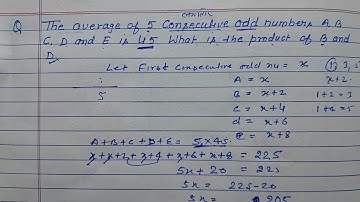 Q The average of 5 Consecutive odd numbers A, B
C, D and E is 45 What is the product of B and
D.
Let First consecutive odd nu = x ① 3, 5
A = x x+2
5
B = x+2 1+2 = 3
C = x+4
d = x+6
e = x+8
A+B+C+D+E = 5×45
x + x+2 + x+4 + x+6 + x+8 = 225
5x + 20 = 225
5x = 225-20
5x = 205